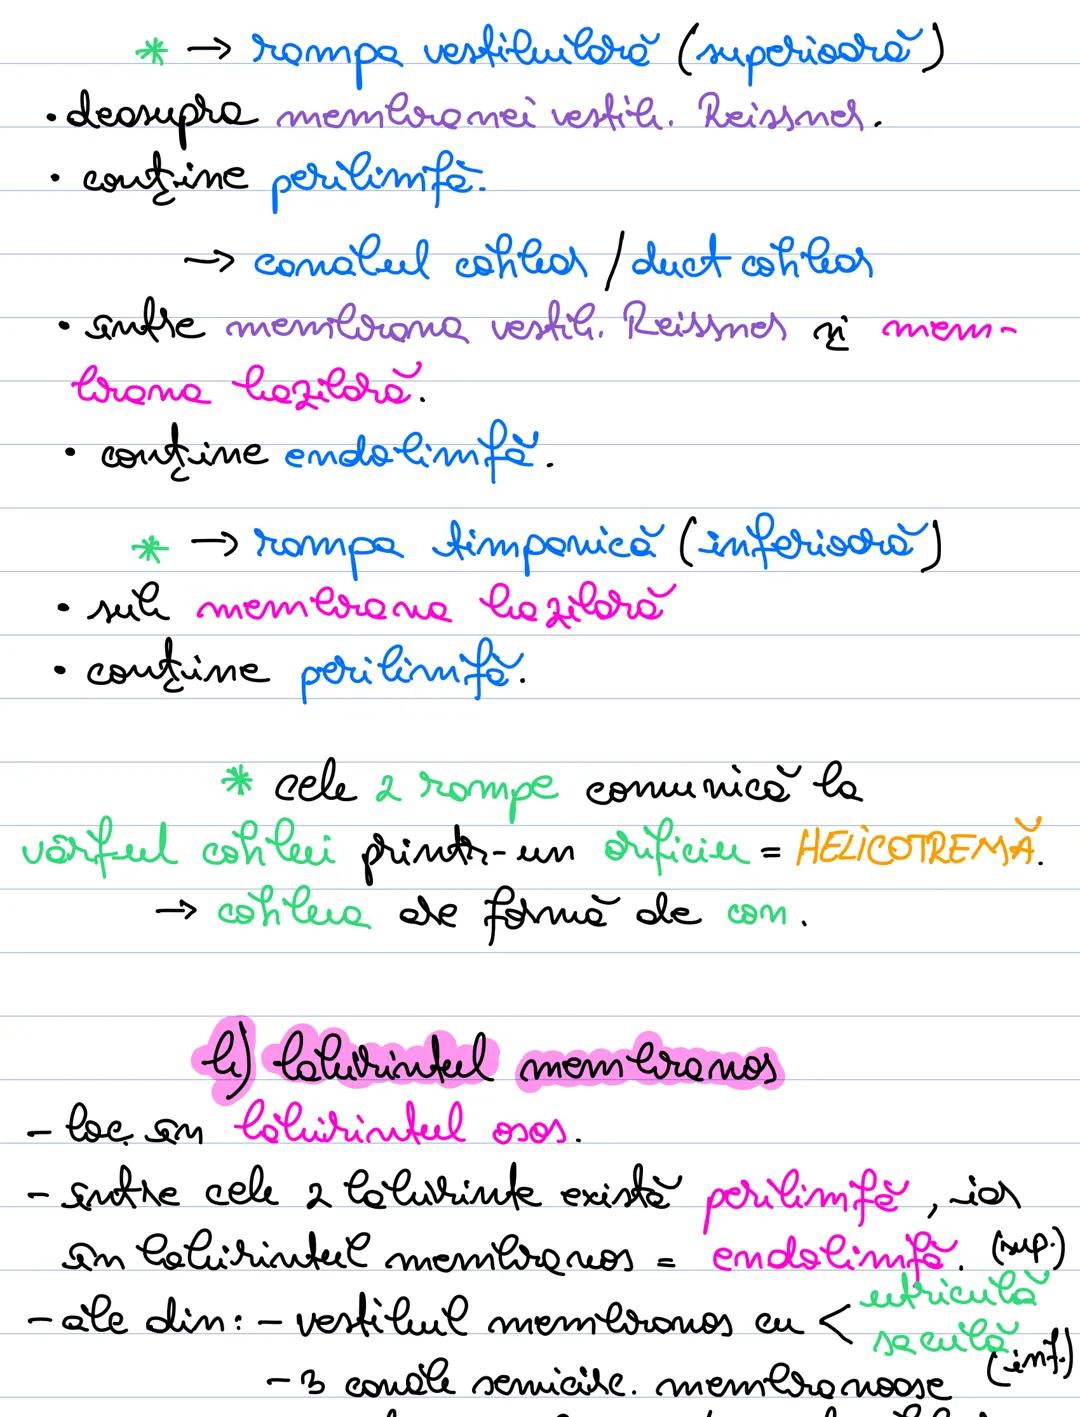 * → rampa vestibulară (superioară)
• deasupra membranei vestib. Reissner.
• conține perilimfă.
→ canalul cohlear / duct cohlear
• între membrana vestib. Reissner și mem-
brana bazilară.
• conține endolimfă.
* → rampa timpanică (inferioară)
• sub membrana bazilară
• conține perilimfă.
* cele 2 rampe comunică la
vârful cohleei printr-un orificiu = HELICOTREMĂ.
→ cohleea are formă de con.
b) labirintul membranos
- loc. în labirintul osos.
- între cele 2 labirinte există perilimfă, iar
în labirintul membranos = endolimfă. (sup.)
- alc din: - vestibul membranos cu < utriculă
saculă (inf.)
- 3 canale semicirc. membranoase